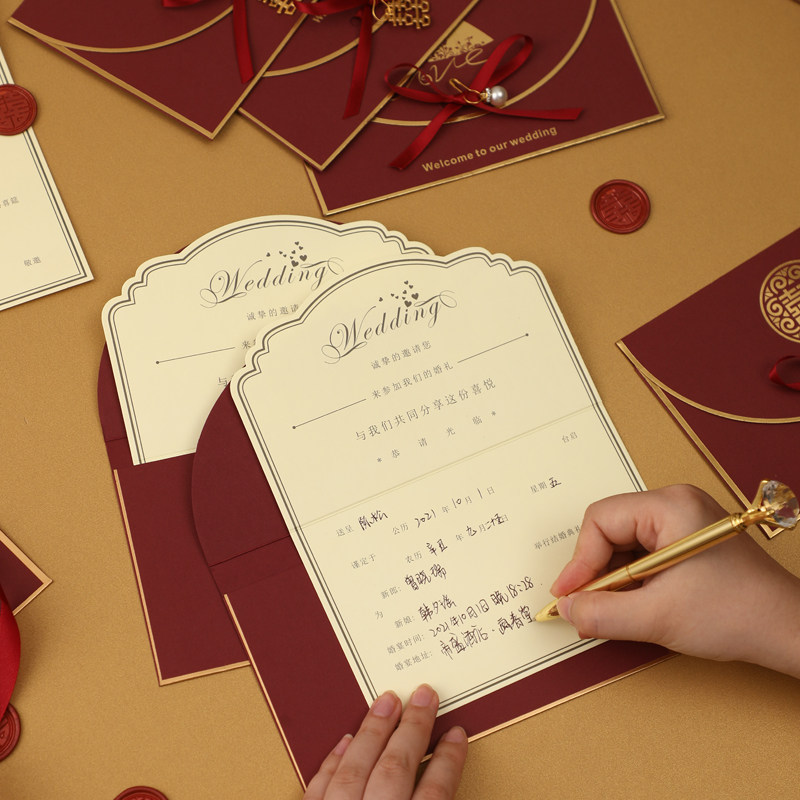 love
Welcome to our wedding
喜筵
敬邀
Wedding
诚挚的邀请
来
与
Wedding
诚挚的邀请您
来参加我们的婚礼
与我们共同分享这份喜悦
* 恭 请 光 临 *
送呈 陈松 台启
公历 2021 年 10 月 1 日 星期 五
谨定于 农历 辛丑 年 九 月 二十五 日 举行结婚典礼
新郎: 曾晓瑞
为
新娘: 韩夕瑶
婚宴时间: 2021年10月1日 晚18:28
婚宴地址: 帝盛酒店·满春堂